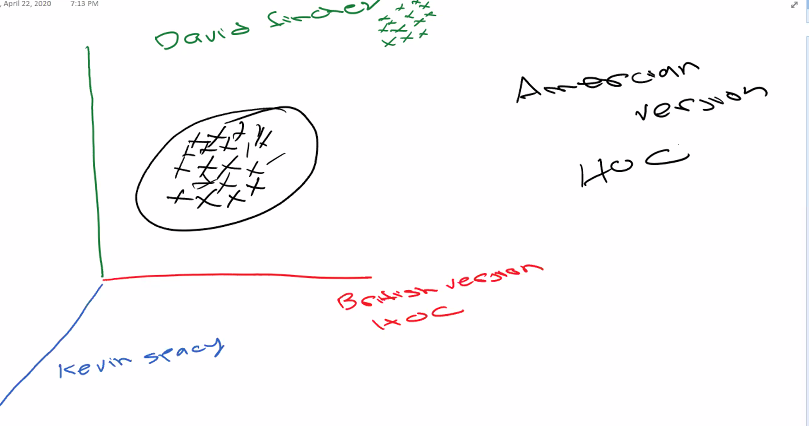 , April 22, 2020 7:13 PM
David fincher
Amercian
version
HOC
British version
HOC
Kevin spacy